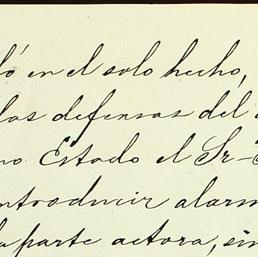 ó en el solo hecho,
las defensas del
no Estado el Sr-
introducir alarm
la parte actora, sin